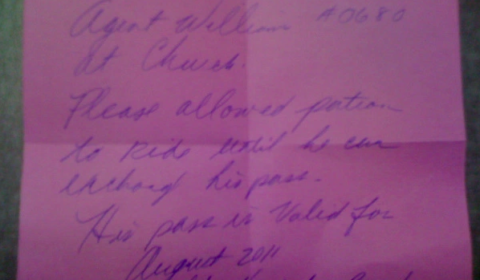 Agent William #0680
At Church.
Please allowed patron
to Ride until he can
exchang his pass.
His pass is Valid for
August 2011